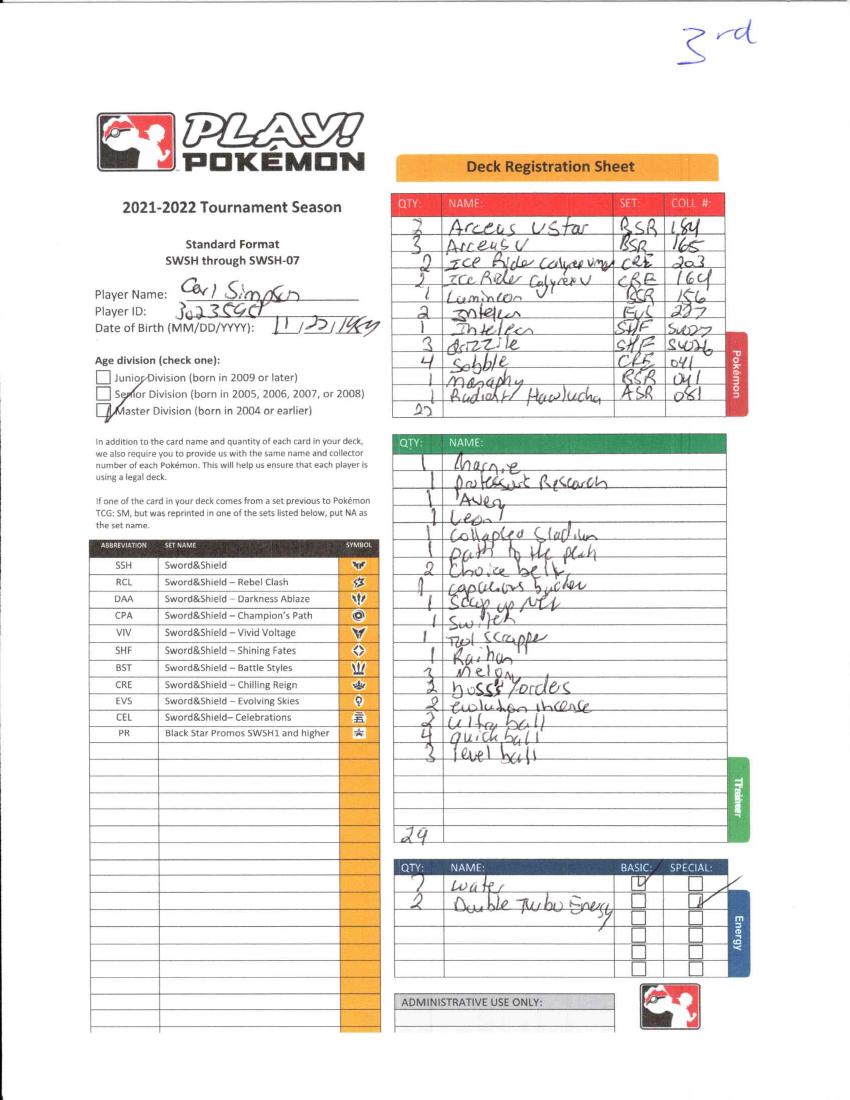 3rd
PLAY!
POKÉMON
Deck Registration Sheet
2021-2022 Tournament Season
Standard Format
SWSH through SWSH-07
Player Name: Carl Simpson
Player ID:
Date of Birth (MM/DD/YYYY):
Age division (check one):
Junior Division (born in 2009 or later)
Senior Division (born in 2005, 2006, 2007, or 2008)
Master Division (born in 2004 or earlier)
In addition to the card name and quantity of each card in your deck,
we also require you to provide us with the same name and collector
number of each Pokémon. This will help us ensure that each player is
using a legal deck.
If one of the card in your deck comes from a set previous to Pokémon
TCG: SM, but was reprinted in one of the sets listed below, put NA as
the set name.
ABBREVIATION SET NAME SYMBOL
SSH Sword&Shield
RCL Sword&Shield – Rebel Clash
DAA Sword&Shield – Darkness Ablaze
CPA Sword&Shield – Champion's Path
VIV Sword&Shield – Vivid Voltage
SHF Sword&Shield – Shining Fates
BST Sword&Shield – Battle Styles
CRE Sword&Shield – Chilling Reign
EVS Sword&Shield – Evolving Skies
CEL Sword&Shield– Celebrations
PR Black Star Promos SWSH1 and higher
QTY: NAME: SET: COLL. #:
2 Arceus VStar BSR 184
3 Arceus V BSR 165
2 Ice Rider Calyrex vmax CRE 203
2 Ice Rider Calyrex V CRE 164
1 Lumineon BSR 156
2 Inteleon EVS 227
1 Inteleon SHF SV027
3 drizzile SHF SV026
4 Sobble CRE 041
1 Manaphy BSR 041
1 Radiant Hawlucha ASR 081
22
Pokémon
QTY: NAME:
1 Marnie
1 professors Research
1 Avery
1 Leon
1 Collapsed Stadium
1 path to the peak
2 Choice belt
1 capacious bucket
1 Scoop up Net
1 Switch
1 Tool scrapper
1 Raihan
3 Melony
2 boss's orders
2 evolution incense
2 Ultra ball
4 quick ball
3 level ball
29
Trainer
QTY: NAME: BASIC: SPECIAL:
7 water
2 Double Turbo Energy
Energy
ADMINISTRATIVE USE ONLY: